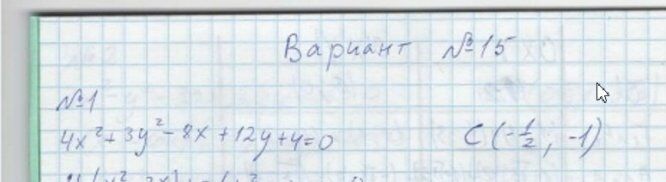 Вариант №15
№1
4x²+3y²-8x+12y+4=0 C(-1/2; -1)